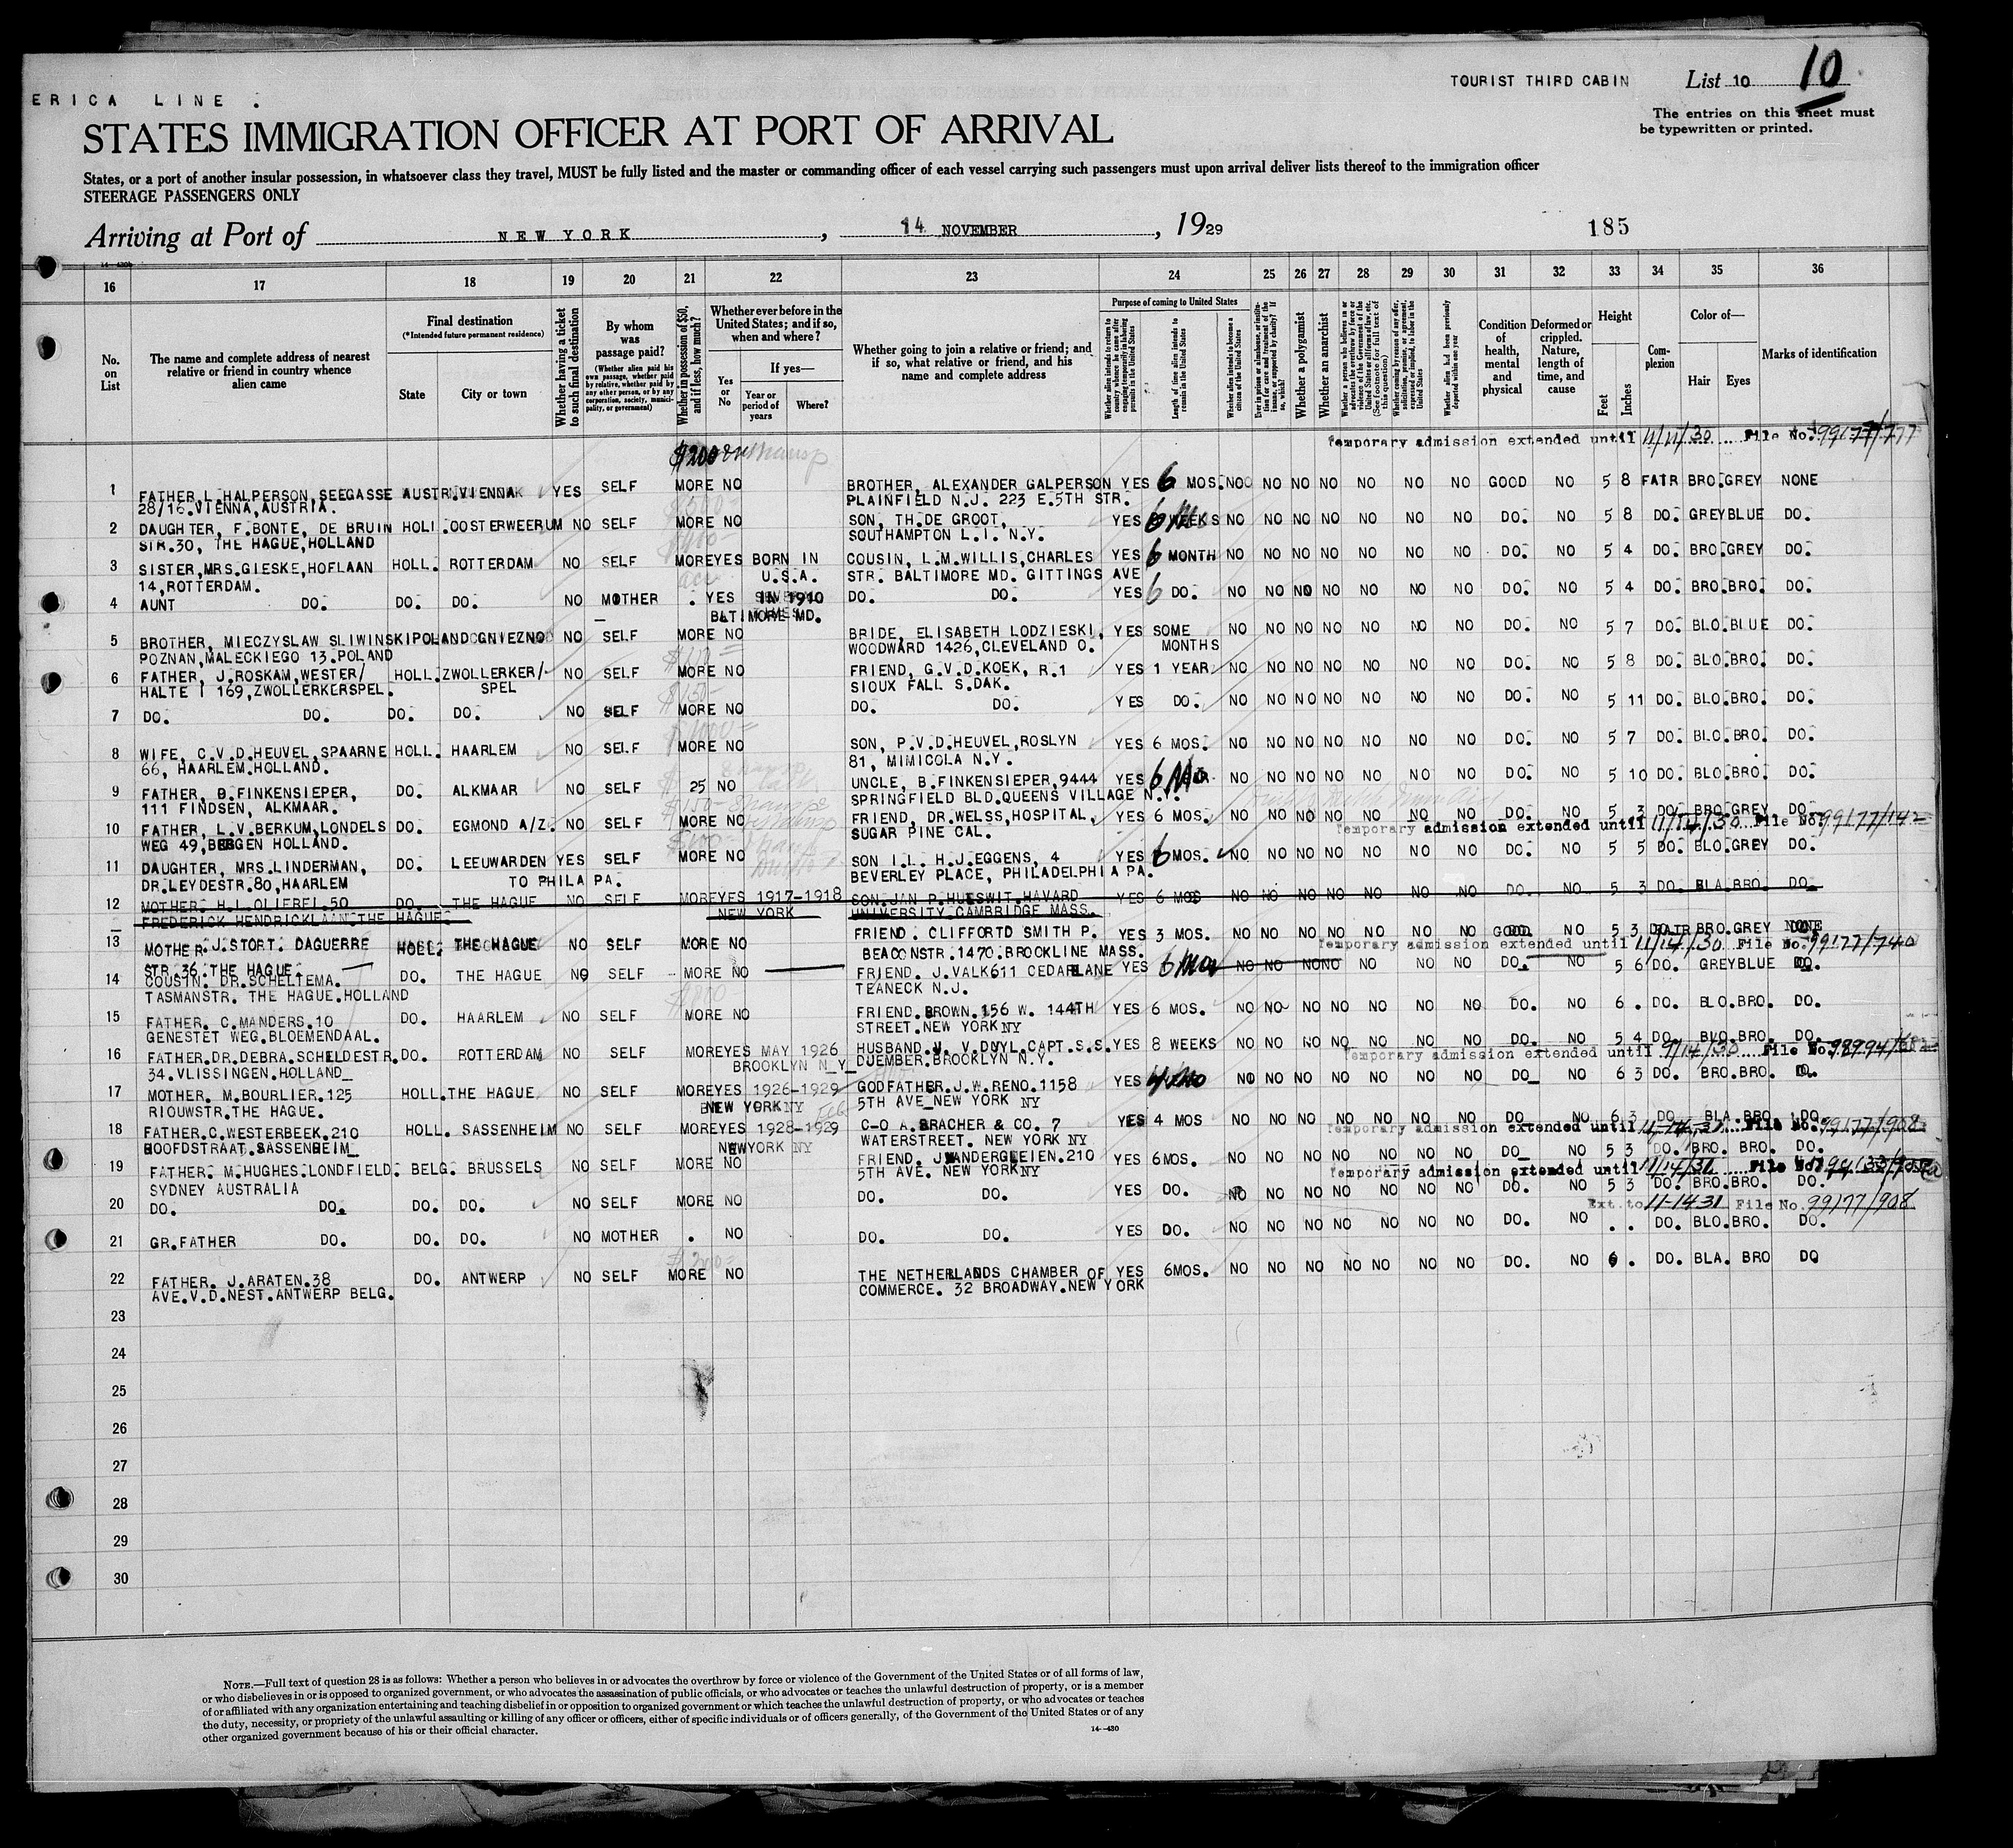 ERICA LINE .
TOURIST THIRD CABIN
List 10 10
The entries on this sheet must
be typewritten or printed.
STATES IMMIGRATION OFFICER AT PORT OF ARRIVAL
States, or a port of another insular possession, in whatsoever class they travel, MUST be fully listed and the master or commanding officer of each vessel carrying such passengers must upon arrival deliver lists thereof to the immigration officer
STEERAGE PASSENGERS ONLY
Arriving at Port of NEW YORK, 14 NOVEMBER, 1929
185
16 17 18 19 20 21 22 23 24 25 26 27 28 29 30 31 32 33 34 35 36
No. on List
The name and complete address of nearest relative or friend in country whence alien came
Final destination
(*Intended future permanent residence)
State
City or town
Whether having a ticket to such final destination
By whom was passage paid?
(Whether alien paid his own passage, whether paid by relative, whether paid by any other person, or by any corporation, society, municipality, or government)
Whether in possession of $50, and if less, how much?
Whether ever before in the United States; and if so, when and where?
Yes or No
If yes—
Year or period of years
Where?
Whether going to join a relative or friend; and if so, what relative or friend, and his name and complete address
Purpose of coming to United States
Whether alien intends to return to country whence he came after engaging temporarily in laboring pursuits in the United States
Length of time alien intends to remain in the United States
Whether alien intends to become a citizen of the United States
Ever in prison or almshouse, or institution for care and treatment of the insane, or supported by charity? If so, which?
Whether a polygamist
Whether an anarchist
Whether a person who believes in or advocates the overthrow by force or violence of the Government of the United States or all forms of law, etc. (See footnote for full text of this question)
Whether coming by reason of any offer, solicitation, promise, or agreement, expressed or implied, to labor in the United States
Whether alien had been previously deported within one year
Condition of health, mental and physical
Deformed or crippled. Nature, length of time, and cause
Height
Feet
Inches
Complexion
Color of—
Hair
Eyes
Marks of identification
$200
Temporary admission extended until 11/11/30 File No. 99177/777
1 FATHER,L.HALPERSON,SEEGASSE AUSTR.VIENNA YES SELF MORE NO BROTHER, ALEXANDER GALPERSON YES 6 MOS. NO NO NO NO NO NO NO GOOD NO 5 8 FAIR BRO.GREY NONE
28/16.VIENNA,AUSTRIA. PLAINFIELD N.J. 223 E.5TH STR.
2 DAUGHTER, F.BONTE, DE BRUIN HOLL.OOSTERWEERUM NO SELF MORE NO SON, TH.DE GROOT, YES 6 WEEKS NO NO NO NO NO NO NO DO. NO 5 8 DO. GREYBLUE DO.
STR.30, THE HAGUE,HOLLAND SOUTHAMPTON L.I. N.Y.
3 SISTER,MRS.GIESKE,HOFLAAN HOLL. ROTTERDAM NO SELF MOREYES BORN IN COUSIN, L.M.WILLIS,CHARLES YES 6 MONTH NO NO NO NO NO NO NO DO. NO 5 4 DO. BRO.GREY DO.
14,ROTTERDAM. U.S.A. STR. BALTIMORE MD. GITTINGS AVE
4 AUNT DO. DO. DO. NO MOTHER . YES IN 1910 DO. DO. YES 6 DO. NO NO NO NO NO NO NO DO. NO 5 4 DO. BRO.BRO. DO.
BLTIMORE MD.
5 BROTHER, MIECZYSLAW SLIWINSKIPOLAND GNIEZNO NO SELF MORE NO BRIDE, ELISABETH LODZIESKI, YES SOME NO NO NO NO NO NO NO DO. NO 5 7 DO. BLO.BLUE DO.
POZNAN,MALECKIEGO 13.POLAND WOODWARD 1426,CLEVELAND O. MONTHS
6 FATHER, J.ROSKAM,WESTER/ HOLL.ZWOLLERKER/ NO SELF MORE NO FRIEND, G.V.D.KOEK, R.1 YES 1 YEAR NO NO NO NO NO NO NO DO. NO 5 8 DO. BLO.BRO. DO.
HALTE I 169,ZWOLLERKERSPEL. SPEL SIOUX FALL S.DAK.
7 DO. DO. DO. DO. NO SELF MORE NO DO. DO. YES DO. NO NO NO NO NO NO NO DO. NO 5 11 DO. BLO.BRO. DO.
8 WIFE, C.V.D.HEUVEL,SPAARNE HOLL. HAARLEM NO SELF MORE NO SON, P.V.D.HEUVEL,ROSLYN YES 6 MOS. NO NO NO NO NO NO NO DO. NO 5 7 DO. BLO.BRO. DO.
66, HAARLEM.HOLLAND. 81, MIMICOLA N.Y.
9 FATHER, B.FINKENSIEPER, DO. ALKMAAR NO SELF 25 NO UNCLE, B.FINKENSIEPER,9444 YES 6 Mo NO NO NO NO NO NO NO DO. NO 5 10 DO. BLO.BRO. DO.
111 FINDSEN, ALKMAAR. SPRINGFIELD BLD.QUEENS VILLAGE N.Y.
10 FATHER, L.V.BERKUM,LONDELS DO. EGMOND A/Z. NO SELF MORE NO FRIEND, DR.WELSS,HOSPITAL, YES 6 MOS. NO NO NO NO NO NO NO DO. NO 5 3 DO. BRO.GREY DO.
WEG 49,BERGEN HOLLAND. SUGAR PINE CAL. Temporary admission extended until 11/14/30 File No. 99177/142
11 DAUGHTER, MRS.LINDERMAN, DO. LEEUWARDEN YES SELF MORE NO SON I.L. H.J.EGGENS, 4 YES 6 MOS. NO NO NO NO NO NO NO DO. NO 5 5 DO. BLO.GREY DO.
DR.LEYDESTR.80,HAARLEM TO PHILA PA. BEVERLEY PLACE, PHILADELPHIA PA.
12 MOTHER. H.L.OLIEREI.50 DO. THE HAGUE NO SELF MOREYES 1917-1918 SON.JAN P.HUESWIT.HAVARD YES 6 MOS NO NO NO NO NO NO NO DO. NO 5 3 DO. BLA.BRO. DO.
FREDERICK HENDRICKLAAN THE HAGUE. NEW YORK UNIVERSITY CAMBRIDGE MASS.
13 MOTHER.J.STORT. DAGUERRE HOLL. THE HAGUE NO SELF MORE NO FRIEND. CLIFFORTD SMITH P. YES 3 MOS. NO NO NO NO NO NO NO GOOD NO 5 3 FAIR BRO.GREY NONE
STR.36.THE HAGUE. BEACONSTR.1470.BROOKLINE MASS. Temporary admission extended until 11/14/30 File No. 99177/740
14 COUSIN. DR.SCHELTEMA. DO. THE HAGUE NO SELF MORE NO FRIEND. J.VALK611 CEDARLANE YES 6 Mos NO NO NO NO NO NO NO DO. NO 5 6 DO. GREYBLUE DO.
TASMANSTR. THE HAGUE.HOLLAND TEANECK N.J.
15 FATHER. C.MANDERS.10 DO. HAARLEM NO SELF MORE NO FRIEND.BROWN.156 W. 144TH YES 6 MOS. NO NO NO NO NO NO NO DO. NO 6 . DO. BLO.BRO. DO.
GENESTET WEG.BLOEMENDAAL. STREET.NEW YORK NY
16 FATHER.DR.DEBRA.SCHELDESTR.DO. ROTTERDAM NO SELF MOREYES MAY 1926 HUSBAND.M. V.DUYL.CAPT.S.S.YES 8 WEEKS NO NO NO NO NO NO NO DO. NO 5 4 DO. BLO.BRO. DO.
34.VLISSINGEN.HOLLAND BROOKLYN N.Y. DUEMBER.BROOKLYN N.Y. Temporary admission extended until 7/14/30 File No. 98994/
17 MOTHER. M.BOURLIER.125 HOLL.THE HAGUE NO SELF MOREYES 1926-1929 GODFATHER.J.W.RENO.1158 YES 4 Mo NO NO NO NO NO NO NO DO NO 6 3 DO. BRO.BRO. DO.
RIOUWSTR.THE HAGUE. NEW YORK NY 5TH AVE NEW YORK NY
18 FATHER.C.WESTERBEEK.210 HOLL. SASSENHEIM NO SELF MOREYES 1928-1929 C-O A.BRACHER & CO. 7 YES 4 MOS NO NO NO NO NO NO NO DO NO 6 3 DO. BLA.BRO. DO.
HOOFDSTRAAT.SASSENHEIM NEWYORK NY WATERSTREET. NEW YORK NY Temporary admission extended until 11-14-31 File No. 99177/908
19 FATHER. M.HUGHES.LONDFIELD. BELG. BRUSSELS NO SELF MORE NO FRIEND. J.VANDERGLEIEN.210 YES 6MOS. NO NO NO NO NO NO NO DO NO 5 3 DO. BRO. BRO. DO.
SYDNEY AUSTRALIA 5TH AVE. NEW YORK NY Temporary admission extended until 11/14/31 File No.
20 DO. DO. DO. DO. NO SELF MORE NO DO. DO. YES DO. NO NO NO NO NO NO NO DO. NO 5 3 DO. BRO.BRO. DO.
Ext. to 11-14-31 File No. 99177/908
21 GR.FATHER DO. DO. DO. NO MOTHER . NO DO. DO. YES DO. NO NO NO NO NO NO NO DO. NO . . DO. BLO.BRO. DO.
22 FATHER. J.ARATEN.38 DO. ANTWERP NO SELF MORE NO THE NETHERLANDS CHAMBER OF YES 6MOS. NO NO NO NO NO NO NO DO. NO 6 . DO. BLA. BRO DO
AVE.V.D.NEST.ANTWERP BELG. COMMERCE. 32 BROADWAY.NEW YORK
23
24
25
26
27
28
29
30
NOTE.—Full text of question 28 is as follows: Whether a person who believes in or advocates the overthrow by force or violence of the Government of the United States or of all forms of law,
or who disbelieves in or is opposed to organized government, or who advocates the assassination of public officials, or who advocates or teaches the unlawful destruction of property, or is a member
of or affiliated with any organization entertaining and teaching disbelief in or opposition to organized government or which teaches the unlawful destruction of property, or who advocates or teaches
the duty, necessity, or propriety of the unlawful assaulting or killing of any officer or officers, either of specific individuals or of officers generally, of the Government of the United States or of any
other organized government because of his or their official character.
14—430